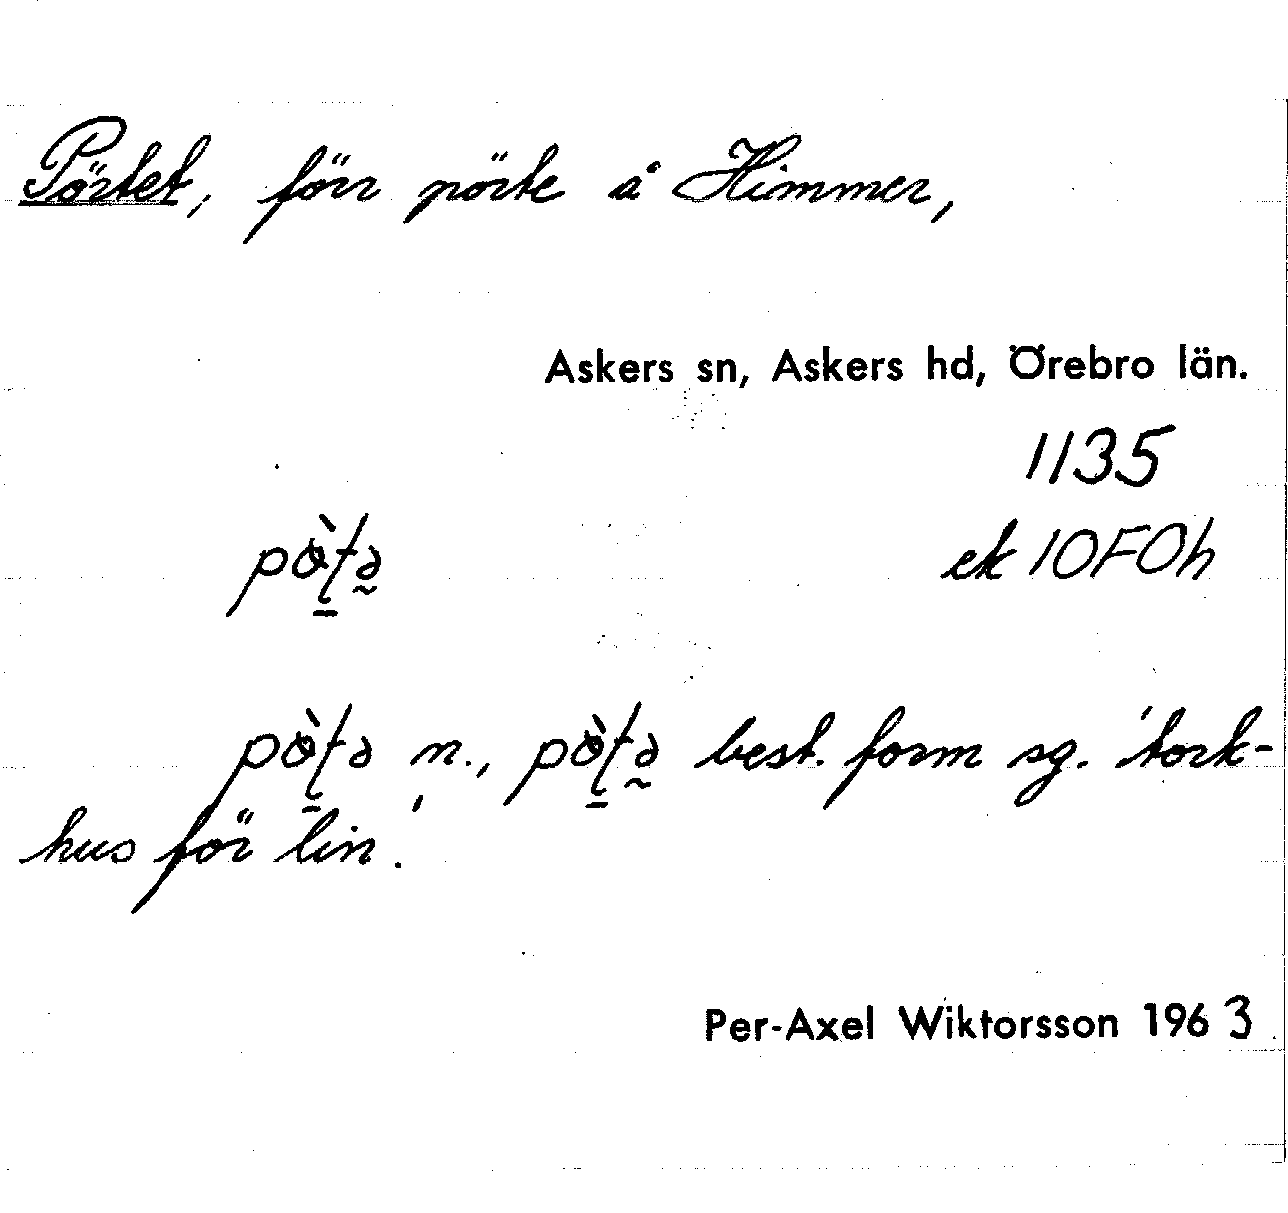 Pörtet, förr pörte å Himmer,
Askers sn, Askers hd, Örebro län.
1135
ek 10F0h
best. form sg. 'tork-
hus för lin'.
Per-Axel Wiktorsson 1963